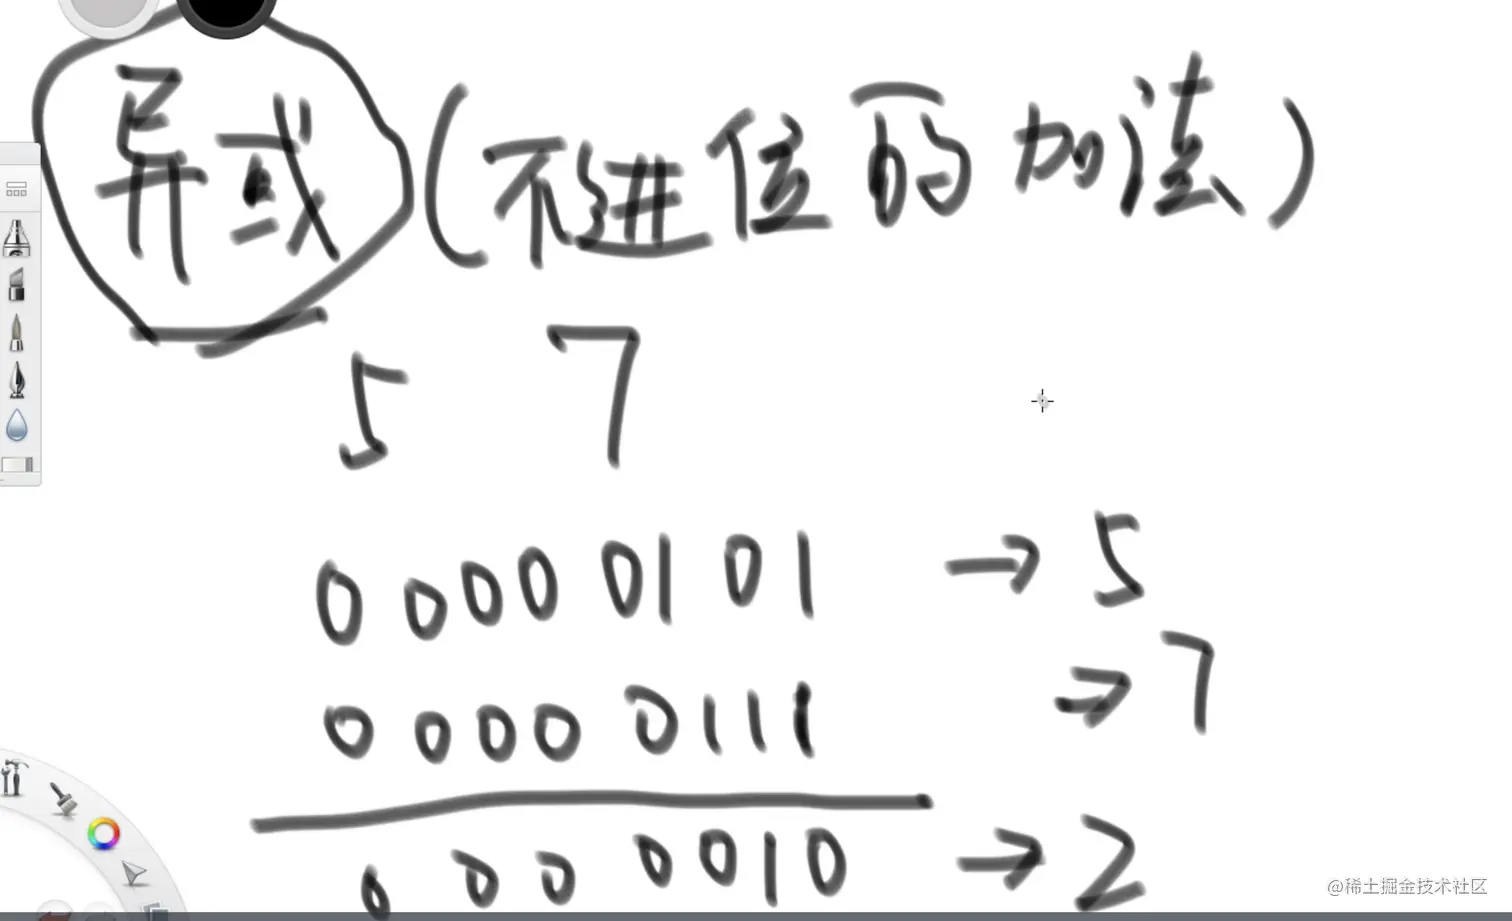 异或(不进位的加法)
5 7
0 0 0 0 0 1 0 1 → 5
0 0 0 0 0 1 1 1 → 7
0 0 0 0 0 1 0 → 2
@稀土掘金技术社区